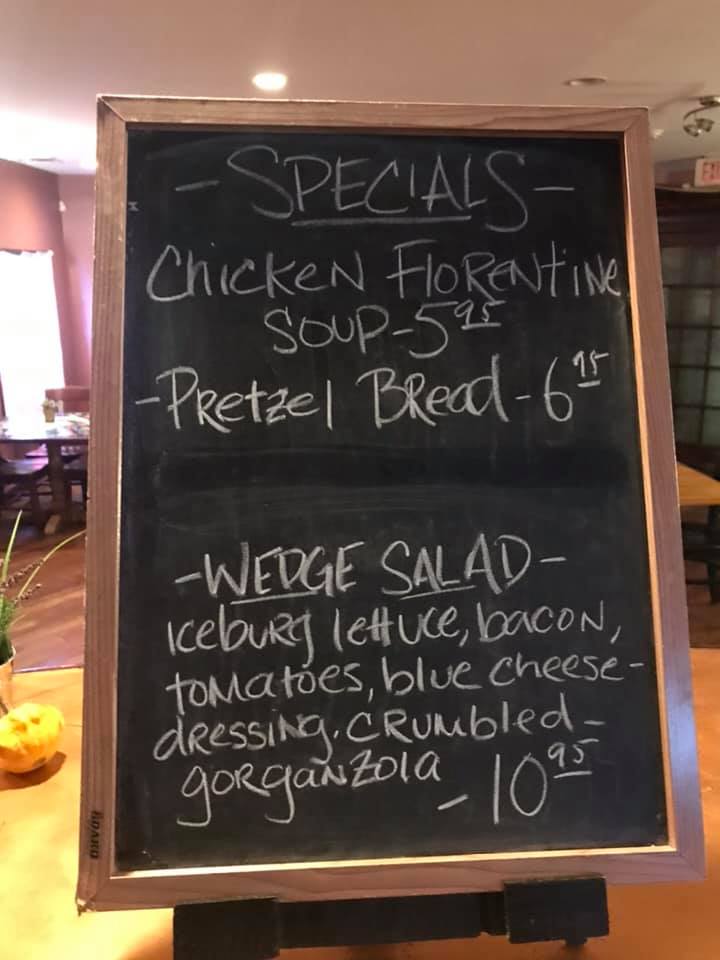 - SPECIALS -
Chicken Florentine
Soup - 5 95
- Pretzel Bread - 6 95
- WEDGE SALAD -
iceburg lettuce, bacon,
tomatoes, blue cheese -
dressing, crumbled -
gorganzola
- 10 95